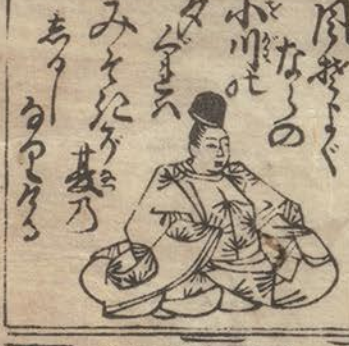 風そよぐ
ならの
小川の
夕ぐれハ
みそぎぞ
夏乃
しるし
なりける